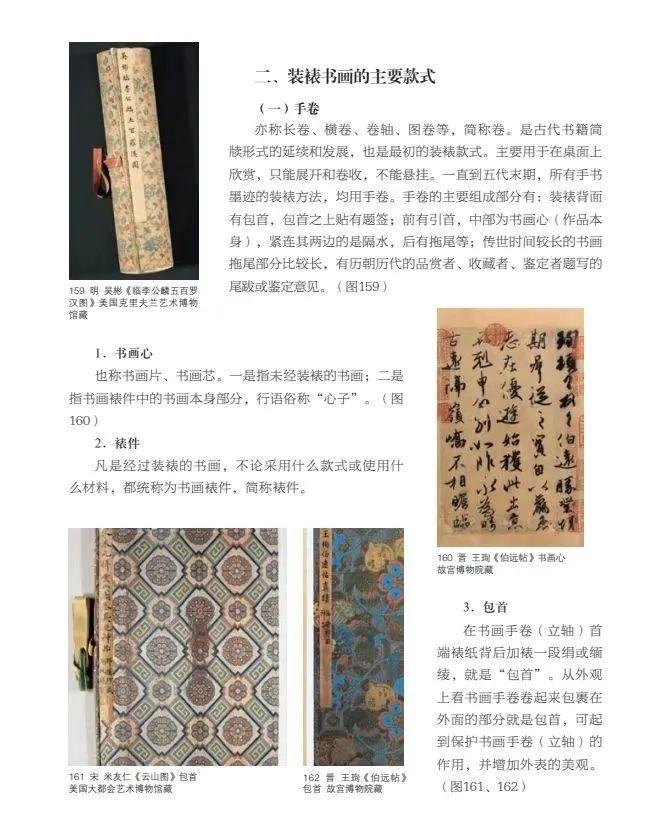 二、装裱书画的主要款式
（一）手卷
亦称长卷、横卷、卷轴、图卷等，简称卷。是古代书籍简
牍形式的延续和发展，也是最初的装裱款式。主要用于在桌面上
欣赏，只能展开和卷收，不能悬挂。一直到五代末期，所有手书
墨迹的装裱方法，均用手卷。手卷的主要组成部分有：装裱背面
有包首，包首之上贴有题签；前有引首，中部为书画心（作品本
身），紧连其两边的是隔水，后有拖尾等；传世时间较长的书画
拖尾部分比较长，有历朝历代的品赏者、收藏者、鉴定者题写的
尾跋或鉴定意见。（图159）
吴彬临李公麟五百罗汉图
159 明 吴彬《临李公麟五百罗
汉图》美国克里夫兰艺术博物
馆藏
1．书画心
也称书画片、书画芯。一是指未经装裱的书画；二是
指书画裱件中的书画本身部分，行语俗称“心子”。（图
160）
2．裱件
凡是经过装裱的书画，不论采用什么款式或使用什
么材料，都统称为书画裱件，简称裱件。
珣顿首顿首伯远胜业情
期群从之宝自以羸患
志在优游始获此出意
不剋申分别如昨永为畴
古远隔岭峤不相瞻临
160 晋 王珣《伯远帖》书画心
故宫博物院藏
161 宋 米友仁《云山图》包首
美国大都会艺术博物馆藏
王珣伯远帖真迹
162 晋 王珣《伯远帖》
包首 故宫博物院藏
3．包首
在书画手卷（立轴）首
端裱纸背后加裱一段绢或缅
绫，就是“包首”。从外观
上看书画手卷卷起来包裹在
外面的部分就是包首，可起
到保护书画手卷（立轴）的
作用，并增加外表的美观。
（图161、162）